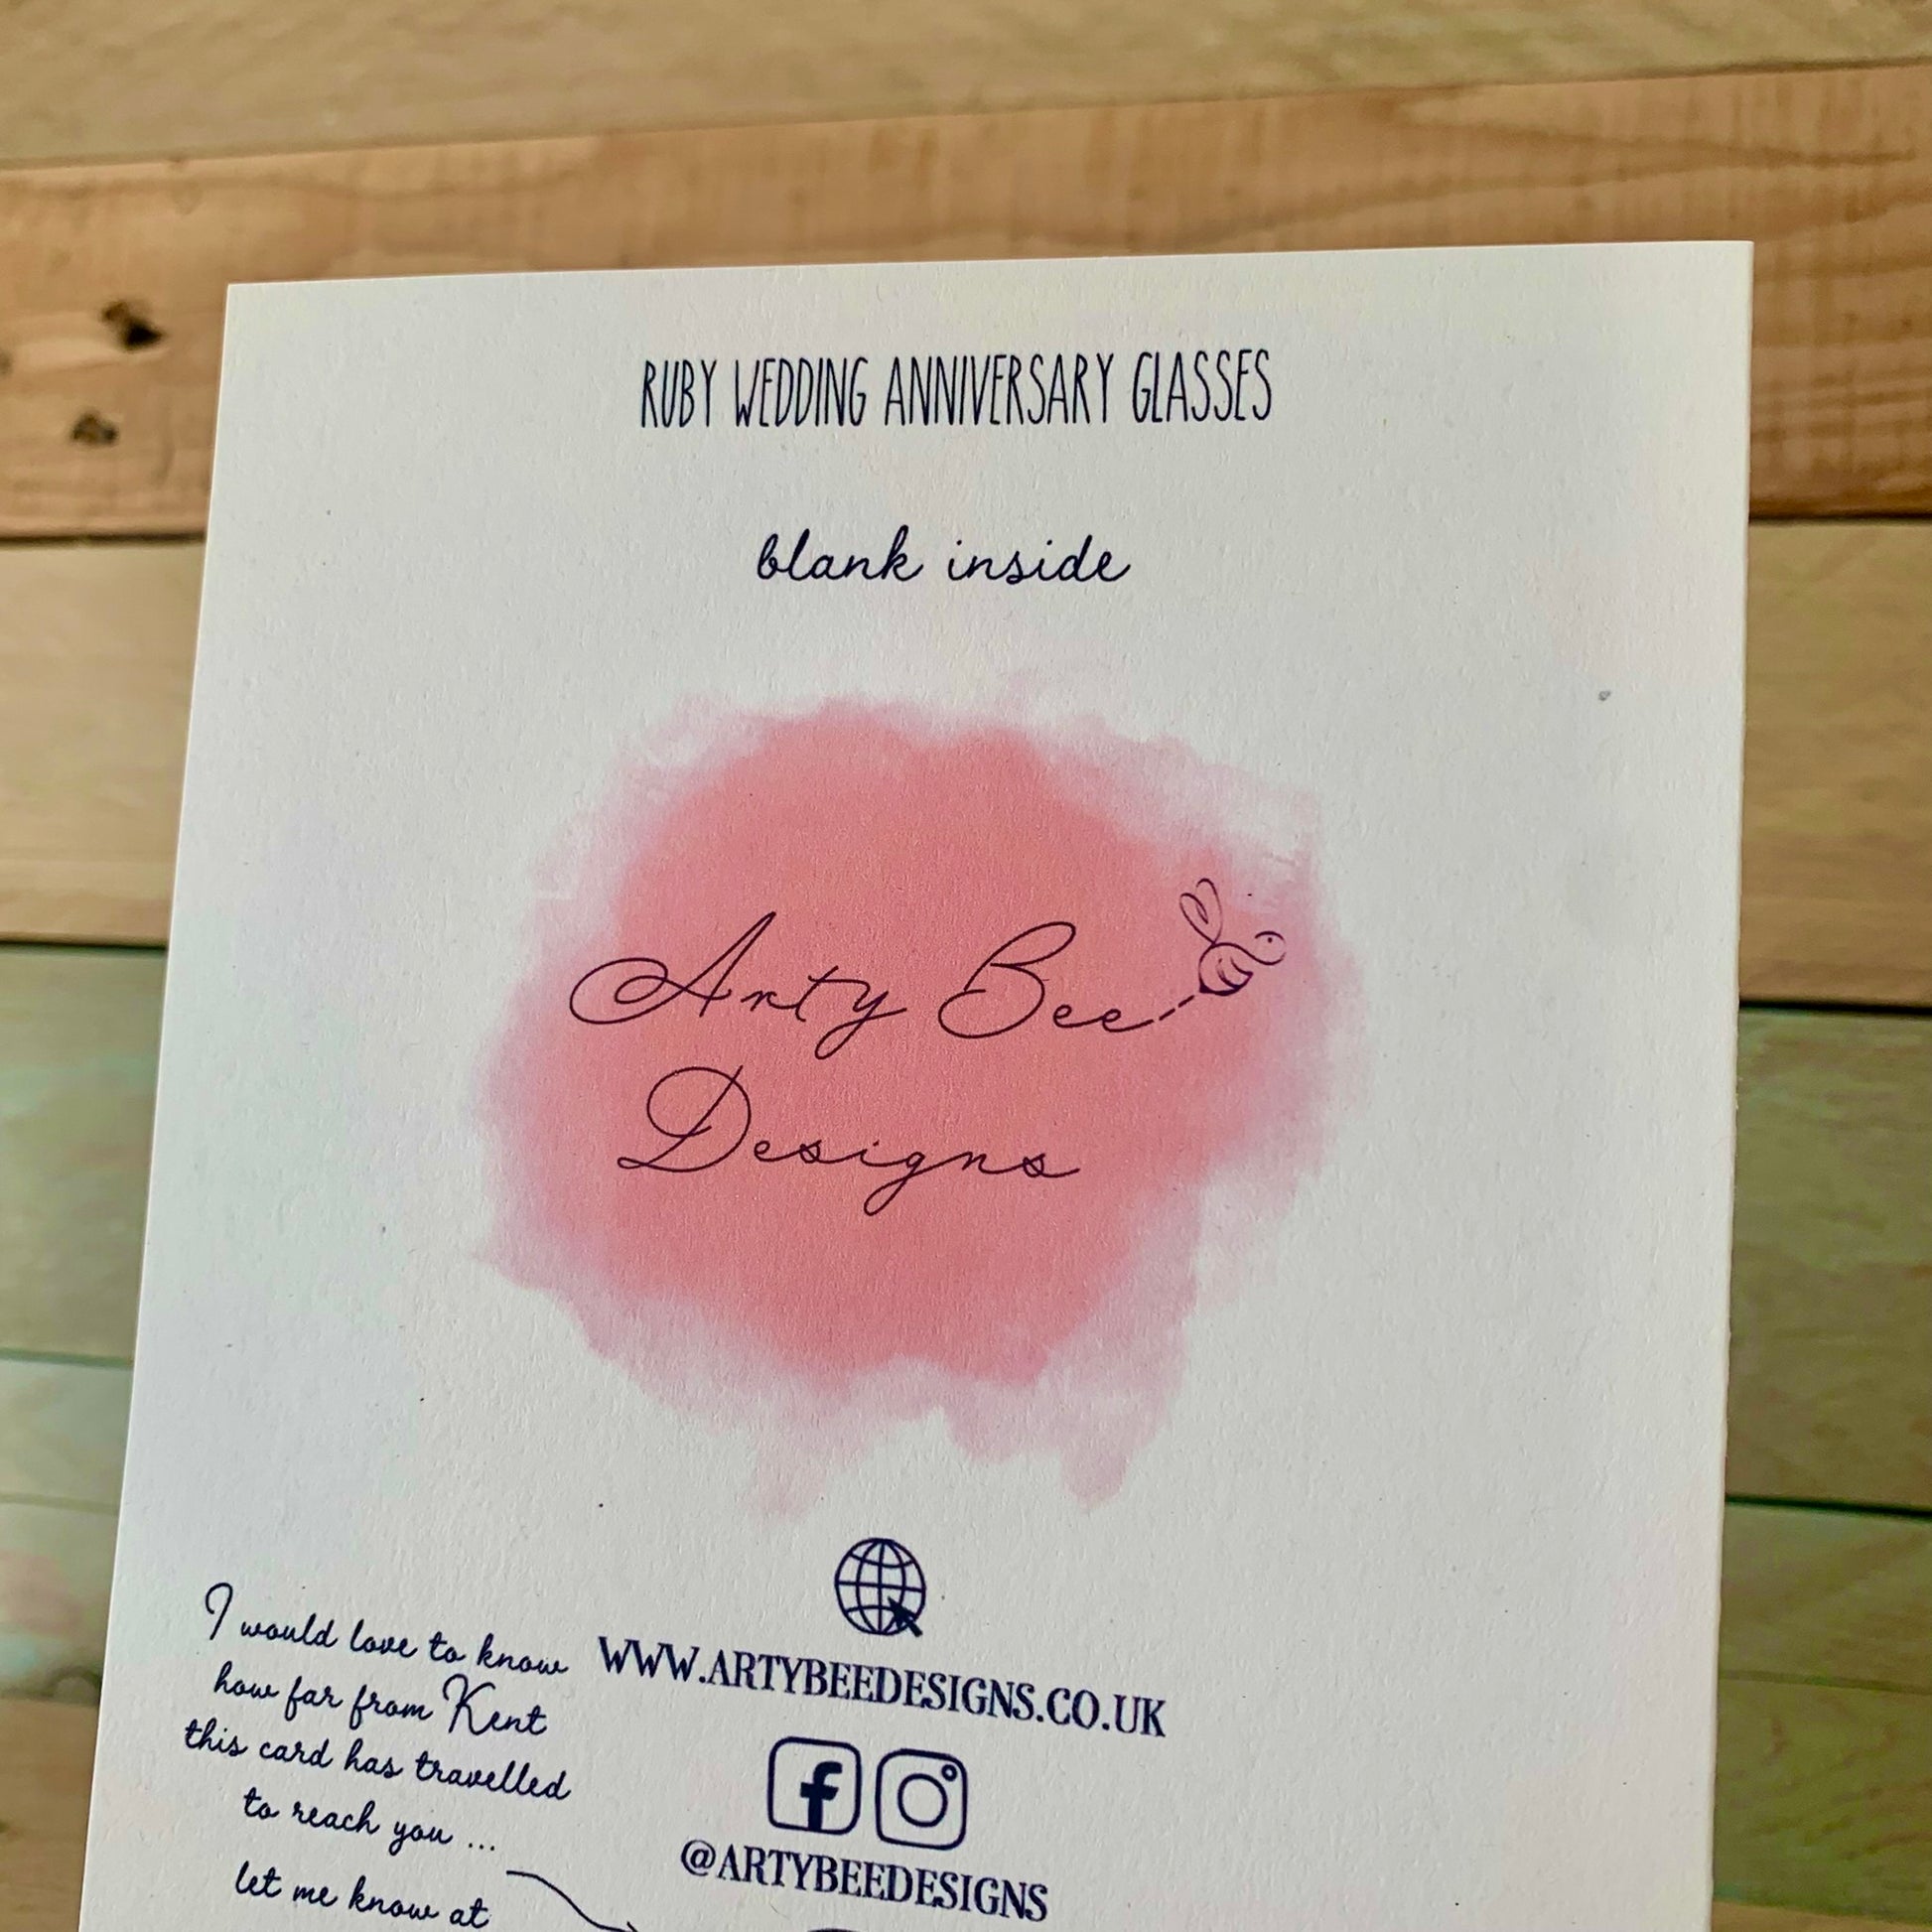 RUBY WEDDING ANNIVERSARY GLASSES
blank inside
Arty Bee
Designs
I would love to know
how far from Kent
this card has travelled
to reach you ...
let me know at
WWW.ARTYBEEDESIGNS.CO.UK
@ARTYBEEDESIGNS